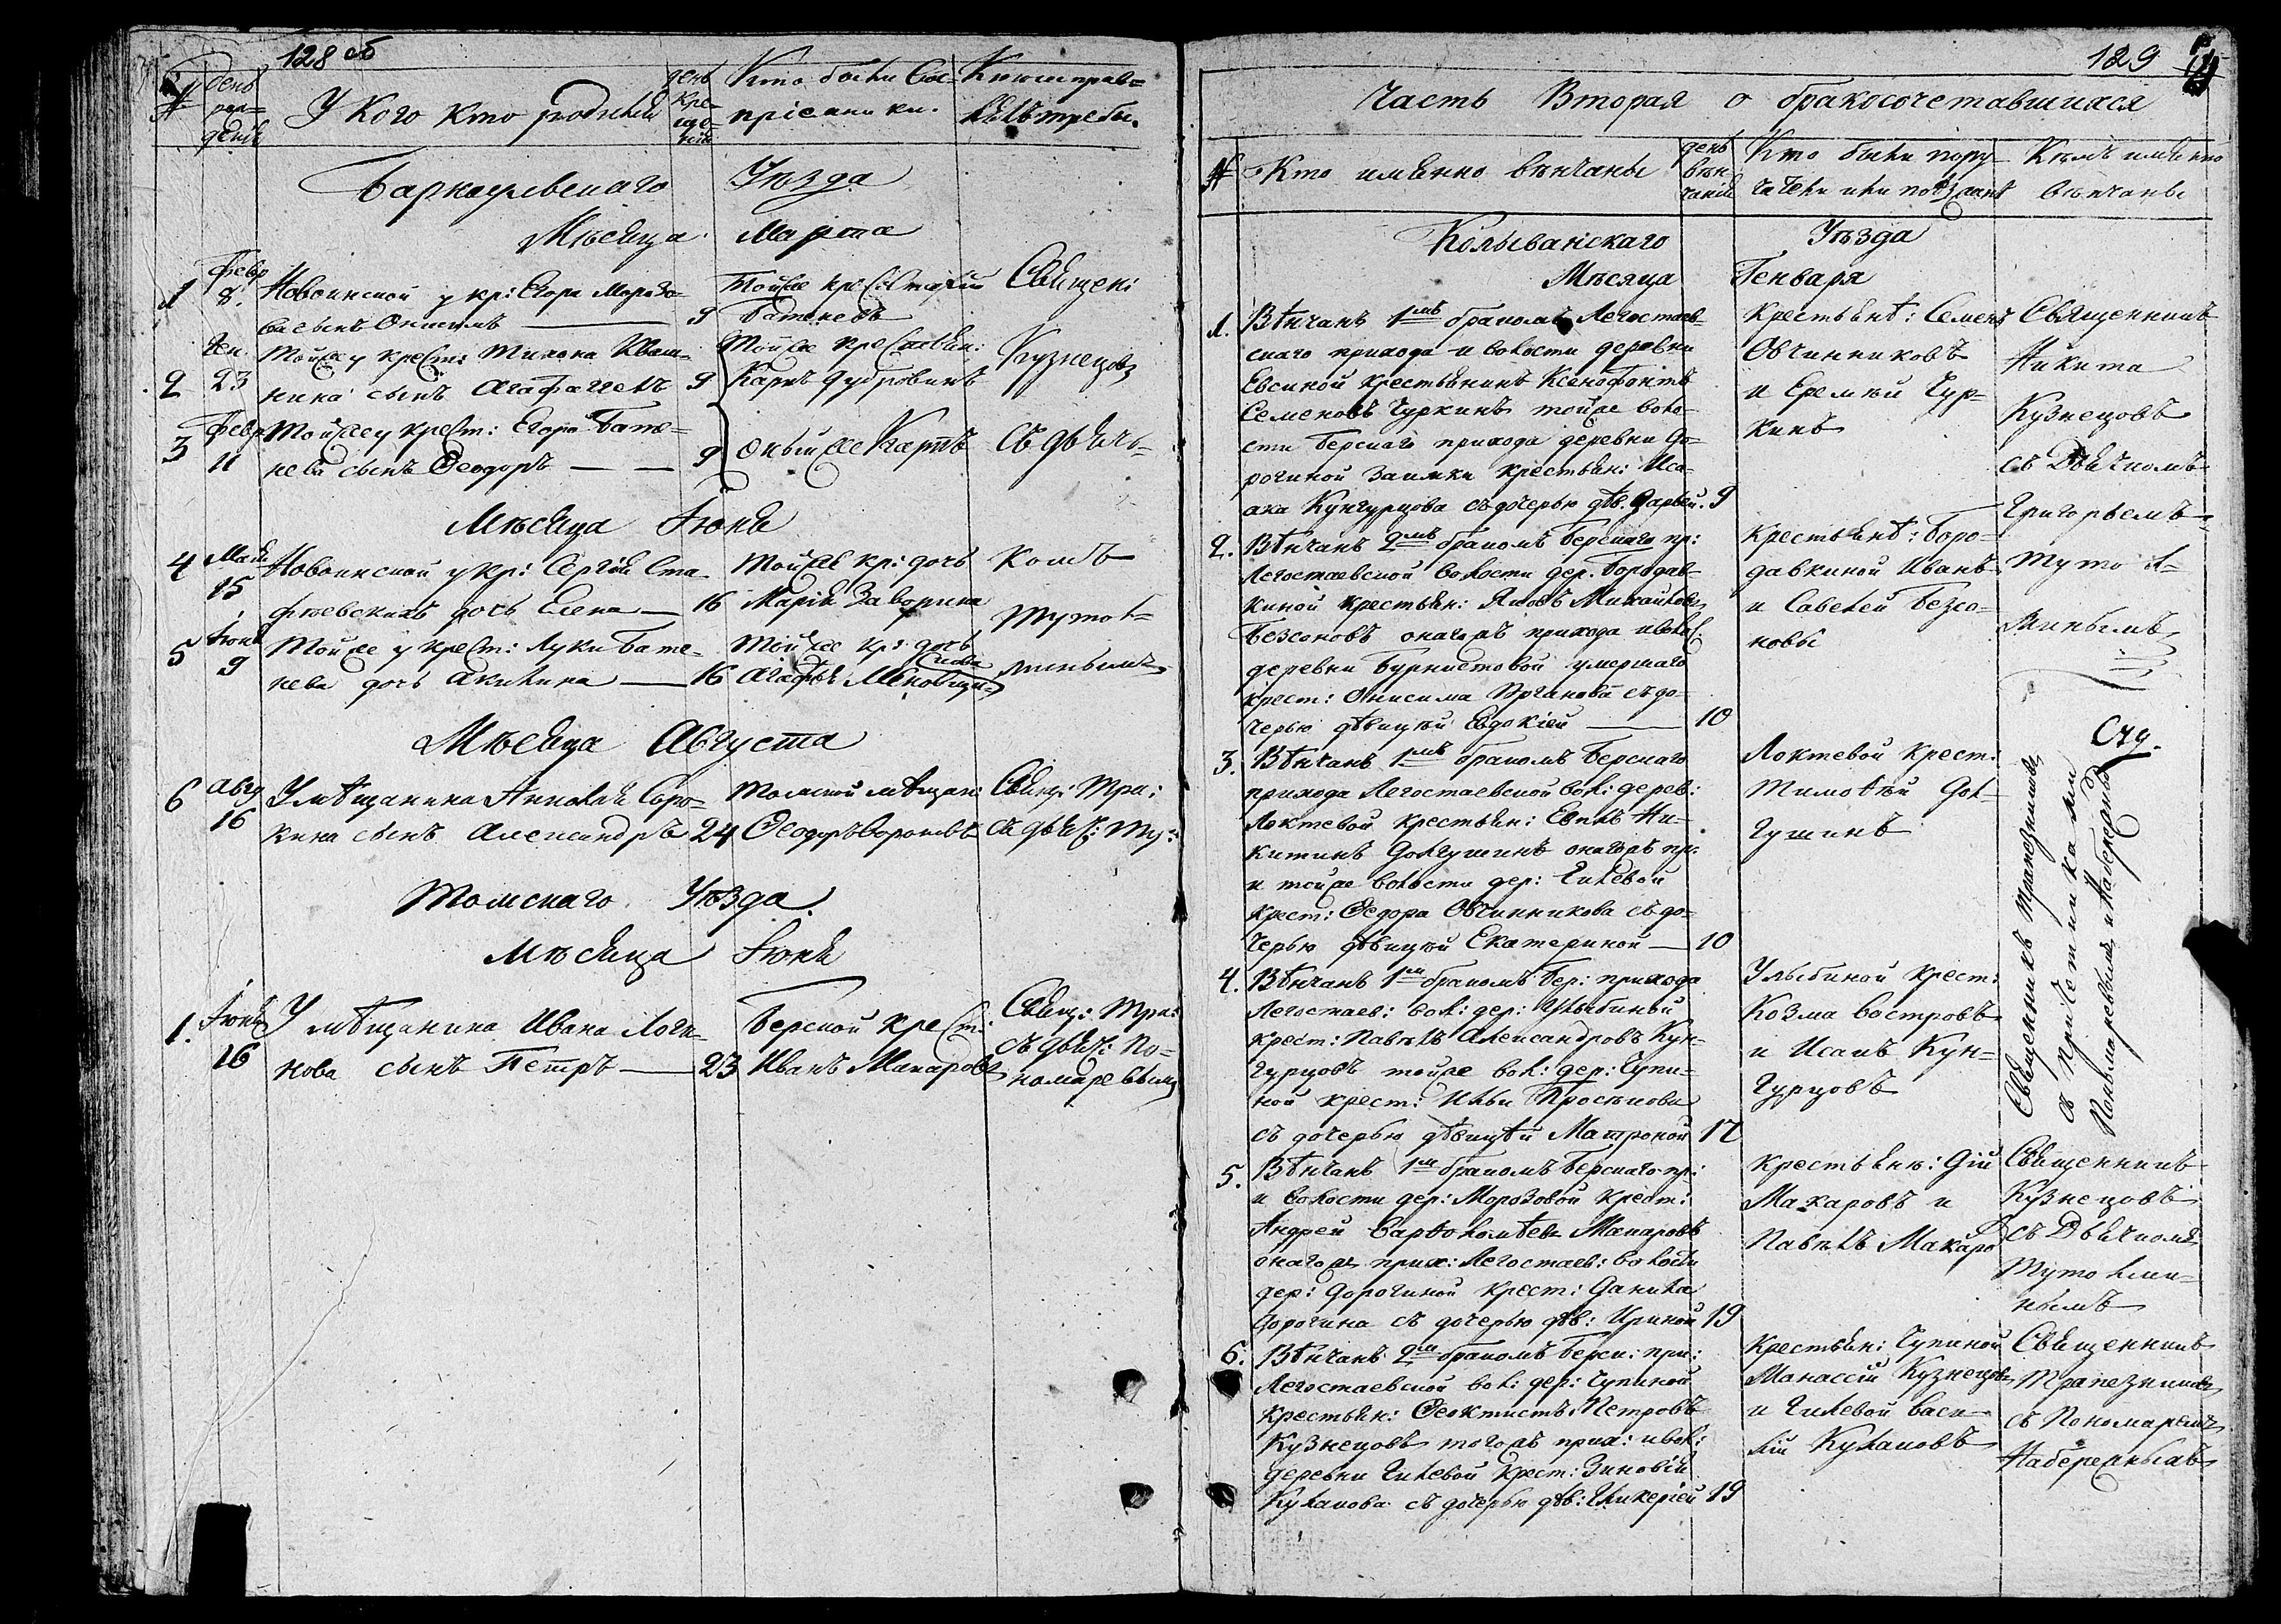 128 об
№
день
рож=
денія
У Кого кто родился
день
кре=
ще=
нія
Кто были Вос=
пріемники.
Кто исправ=
лялъ требы.
Барнаульскаго Уѣзда
Мѣсяца Марта
1
Февр
8.
Новоинской у кр: Егора Морозо=
ва сынъ Онисимъ
9
Тойже кр:
Батеневъ
Священ:
2
Ген
23
Тойже у крест: Тихона Иваш=
нина сынъ Агафаггелъ
9
Тойже крестьян:
Карпъ Дубровинъ
Кузнецовъ
3
Февр
11
Тойже у крест: Егора Бате=
нева сынъ Ѳеодоръ
9
оныйже Карпъ
съ дьяч=
Мѣсяца Іюня
4
Маія
15
Новоинской у кр: Сергія Ста=
фіевскихъ дочь Елена
16
тойже кр: дочь
Марія Заворина
комъ
Тутол=
5
Іюня
9
Тойже у крест: Луки Бате=
нева дочь Акилина
16
тойже кр: дочь
Агафья
минымъ
Мѣсяца Августа
6
Авгу
16
У мѣщанина Николая Соро=
кина сынъ Александръ
24
томской мѣщан:
Ѳеодоръ Воротовъ
Свящ: Тра:
съ дьяч: Ту:
Томскаго Уѣзда.
Мѣсяца Іюня
1.
Іюня
16
У мѣщанина Ивана Логи=
нова сынъ Петръ
23
Берской крест:
Иванъ Макаровъ
Свящ: Тра:
съ дьяч: По=
номаревымъ
129
Часть Вторая о бракосочетавшихся
№
Кто имянно вѣнчаны
день
вѣн
чанія
Кто были пору
чители или поѣзжанѣ
Кѣмъ имянно
вѣнчаны
Колыванскаго Уѣзда
Мѣсяца Генваря
1.
Вѣнчанъ 1мъ бракомъ Легостаев=
скаго прихода и волости деревни
Евсиной крестьянинъ Ксенофонтъ
Семеновъ Чуркинъ тойже воло=
сти Берскаго прихода деревни До=
рогиной Заимки крестьян: Иса=
ака Кунгурцова съ дочерью дѣв. Дарьей.
9
Крестьянѣ: Семенъ
Овчинниковъ
и Еремѣй Чур=
кинъ
Священникъ
Никита
Кузнецовъ
съ Дьячкомъ
Григорьемъ
Тутол=
минымъ
2.
Вѣнчанъ 2мъ бракомъ Берскаго пр:
Легостаевской волости дер. Бородав=
киной крестьян: Яковъ Михайловъ
Безсоновъ онагожъ прихода и волос
деревни Бурмистовой умершаго
крест: Онисима Арганова съ до=
черью дѣвицѣй Евдокіей
10
Крестьянѣ: Боро=
давкиной Иванъ
и Савелей Безсо=
новы
3.
Вѣнчанъ 1мъ бракомъ Берскаго
прихода Легостаевской вол: дерев:
Локтевой крестьян: Евплъ Ни=
китинъ Долгушинъ онагожъ пр:
и тойже волости дер: Гилевой
крест: Ѳедора Овчинникова съ до=
черью дѣвицѣй Екатериной
10
Локтевой крест:
Тимоѳѣй Дол=
гушинъ
Священникъ Трапезниковъ
съ причетниками
Пономаревымъ и Набережнымъ
4.
Вѣнчанъ 1м бракомъ Бер: прихода
Легостаев: вол: дер: Улыбиной
крест: Павелъ Александровъ Кун=
гурцовъ тойже вол: дер: Чупи=
ной крест: Ильи Просѣкова
съ дочерью дѣвицѣй Матроной
17
Улыбиной крест:
Козма Востровъ
и Исакъ Кун=
гурцовъ
5.
Вѣнчанъ 1м бракомъ Берскаго пр:
и волости дер: Морозовой крест:
Андрей Варѳоломѣевъ Макаровъ
онагожъ прих: Легостаев: волости
дер: Дорогиной крест: Данила
Дорогина съ дочерью дѣв: Ириной
19
Крестьянѣ: Дій
Макаровъ и
Павелъ Макаро
Священникъ
Кузнецовъ
съ Дьячкомъ
Тутолми=
нымъ
6.
Вѣнчанъ 2м бракомъ Берск: при:
Легостаевской вол: дер: Чупиной
крестьян: Ѳеоктистъ Петровъ
Кузнецовъ тогожъ прих: и вол:
деревни Гилевой крест: Зиновія
Кулакова съ дочерью дѣв: Гликеріей
19
Крестьян: Чупиной
Манассій Кузнецовъ
и Гилевой Васи=
лій Кулаковъ
Священникъ
Трапезниковъ
съ Пономаремъ
Набережнымъ